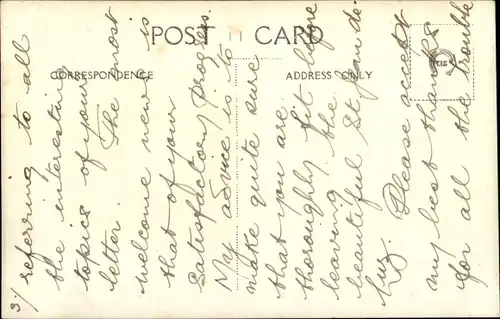 POST CARD
CORRESPONDENCE
ADDRESS ONLY
3/
referring to all
the interesting
topics of your
letter. The most
welcome news is
that of your
satisfactory progress.
My advice is to
make quite sure
that you are
thoroughly fit before
leaving the
beautiful St Jean de
Luz. Please accept
my best thanks
for all the trouble